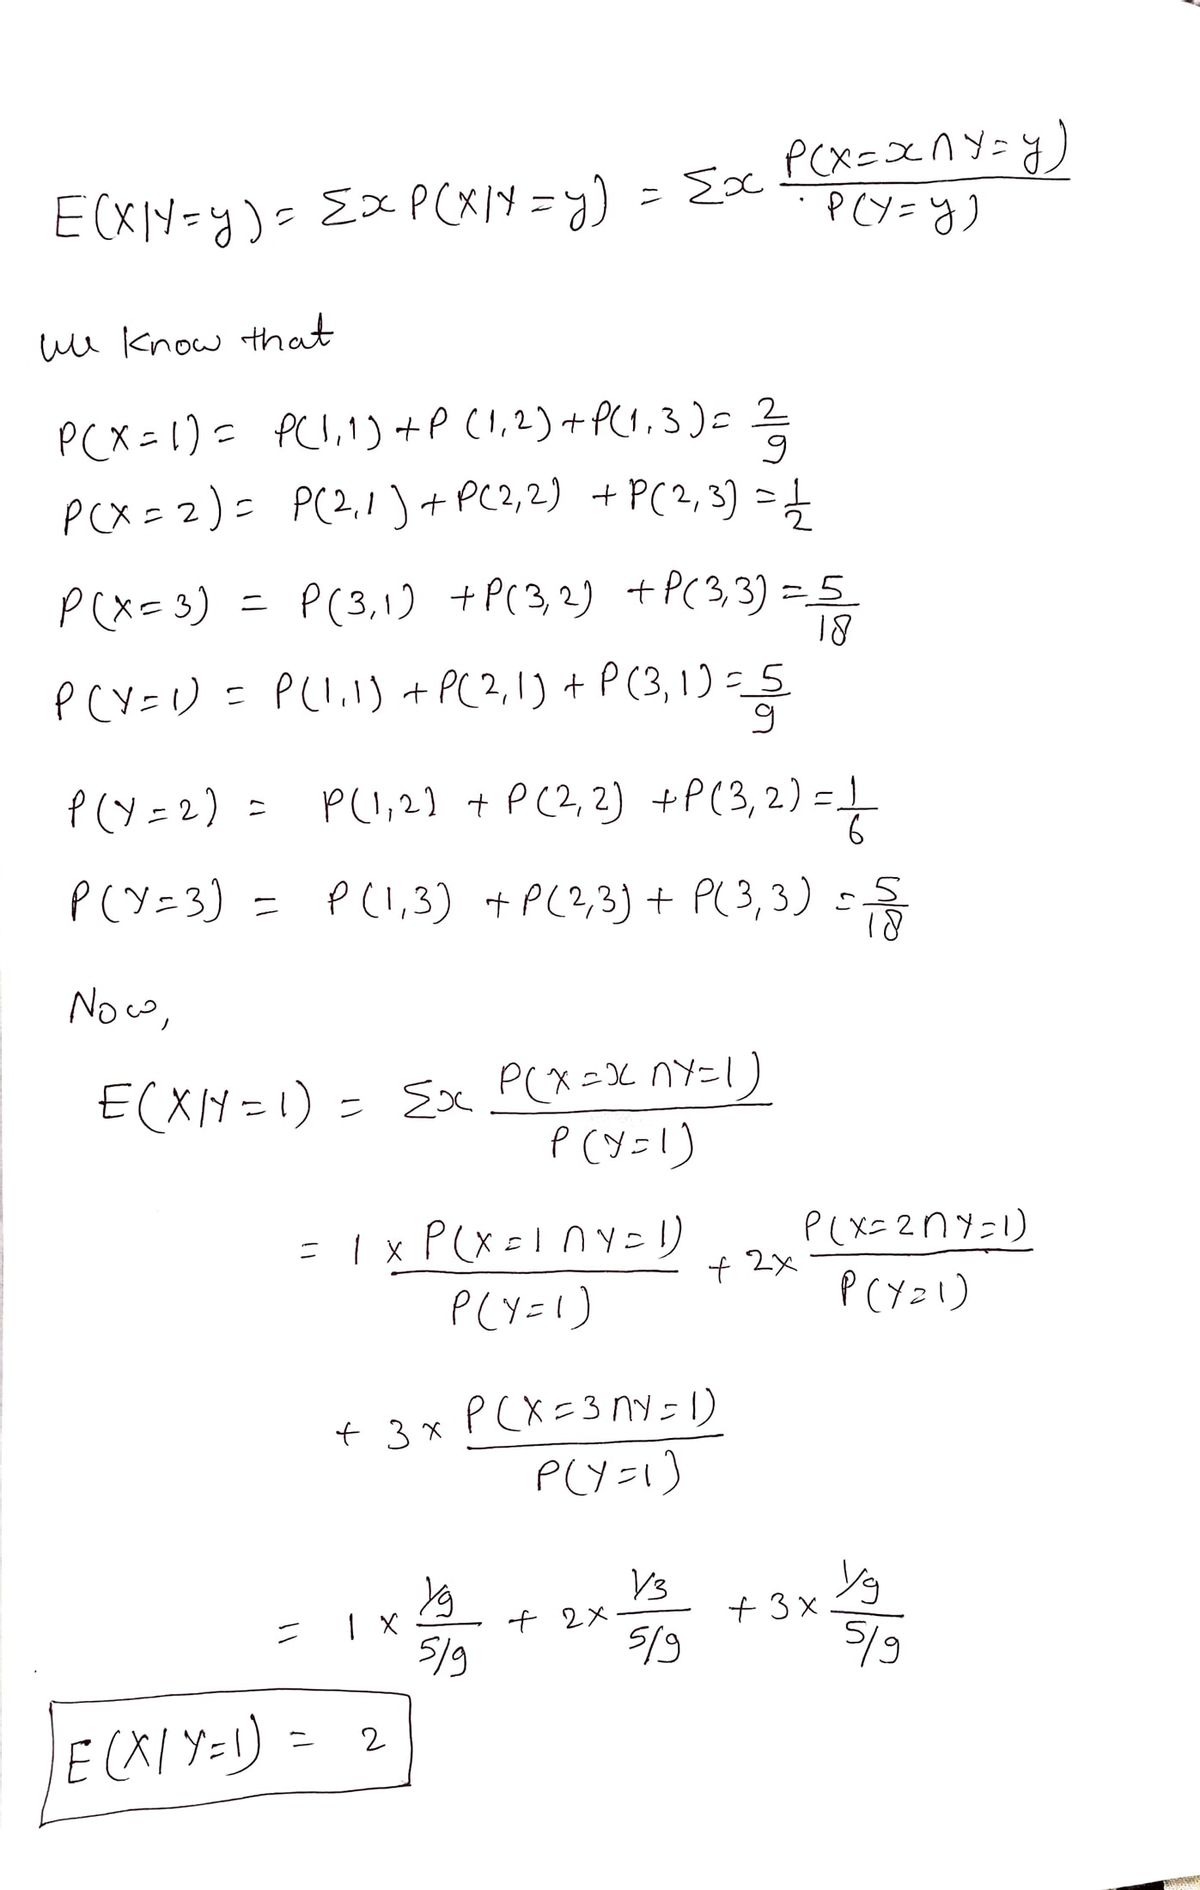 E(X|Y=y) = Σx P(X|Y=y) = Σx P(X=x∩Y=y)/P(Y=y)
we know that
P(X=1) = P(1,1)+P(1,2)+P(1,3) = 2/9
P(X=2) = P(2,1)+P(2,2)+P(2,3) = 1/2
P(X=3) = P(3,1)+P(3,2)+P(3,3) = 5/18
P(Y=1) = P(1,1)+P(2,1)+P(3,1) = 5/9
P(Y=2) = P(1,2)+P(2,2)+P(3,2) = 1/6
P(Y=3) = P(1,3)+P(2,3)+P(3,3) = 5/18
Now,
E(X|Y=1) = Σx P(X=x∩Y=1)/P(Y=1)
= 1 × P(X=1∩Y=1)/P(Y=1) + 2× P(X=2∩Y=1)/P(Y=1)
+ 3× P(X=3∩Y=1)/P(Y=1)
= 1 × (1/9)/(5/9) + 2× (1/3)/(5/9) + 3× (1/9)/(5/9)
E(X|Y=1) = 2